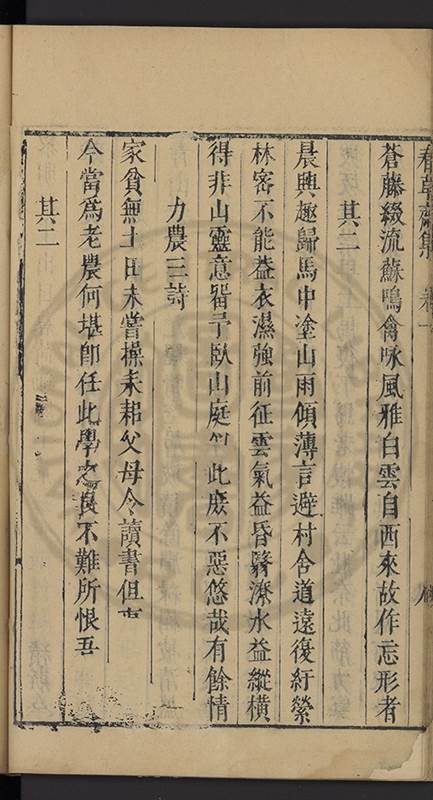 蒼藤綴流蘇鳴禽咏風雅白雲自西來故作忘形者
其二
晨興趣歸馬中塗山雨傾薄言避村舍道遠復紆縈
林密不能葢衣濕強前征雲氣益昏翳潦水益縱橫
得非山靈意畱予臥山庭 此處不惡悠哉有餘情
力農三詩
家貧無土田未嘗操耒耜父母令讀書但
今當爲老農何堪卽任此學之良不難所恨吾
其二